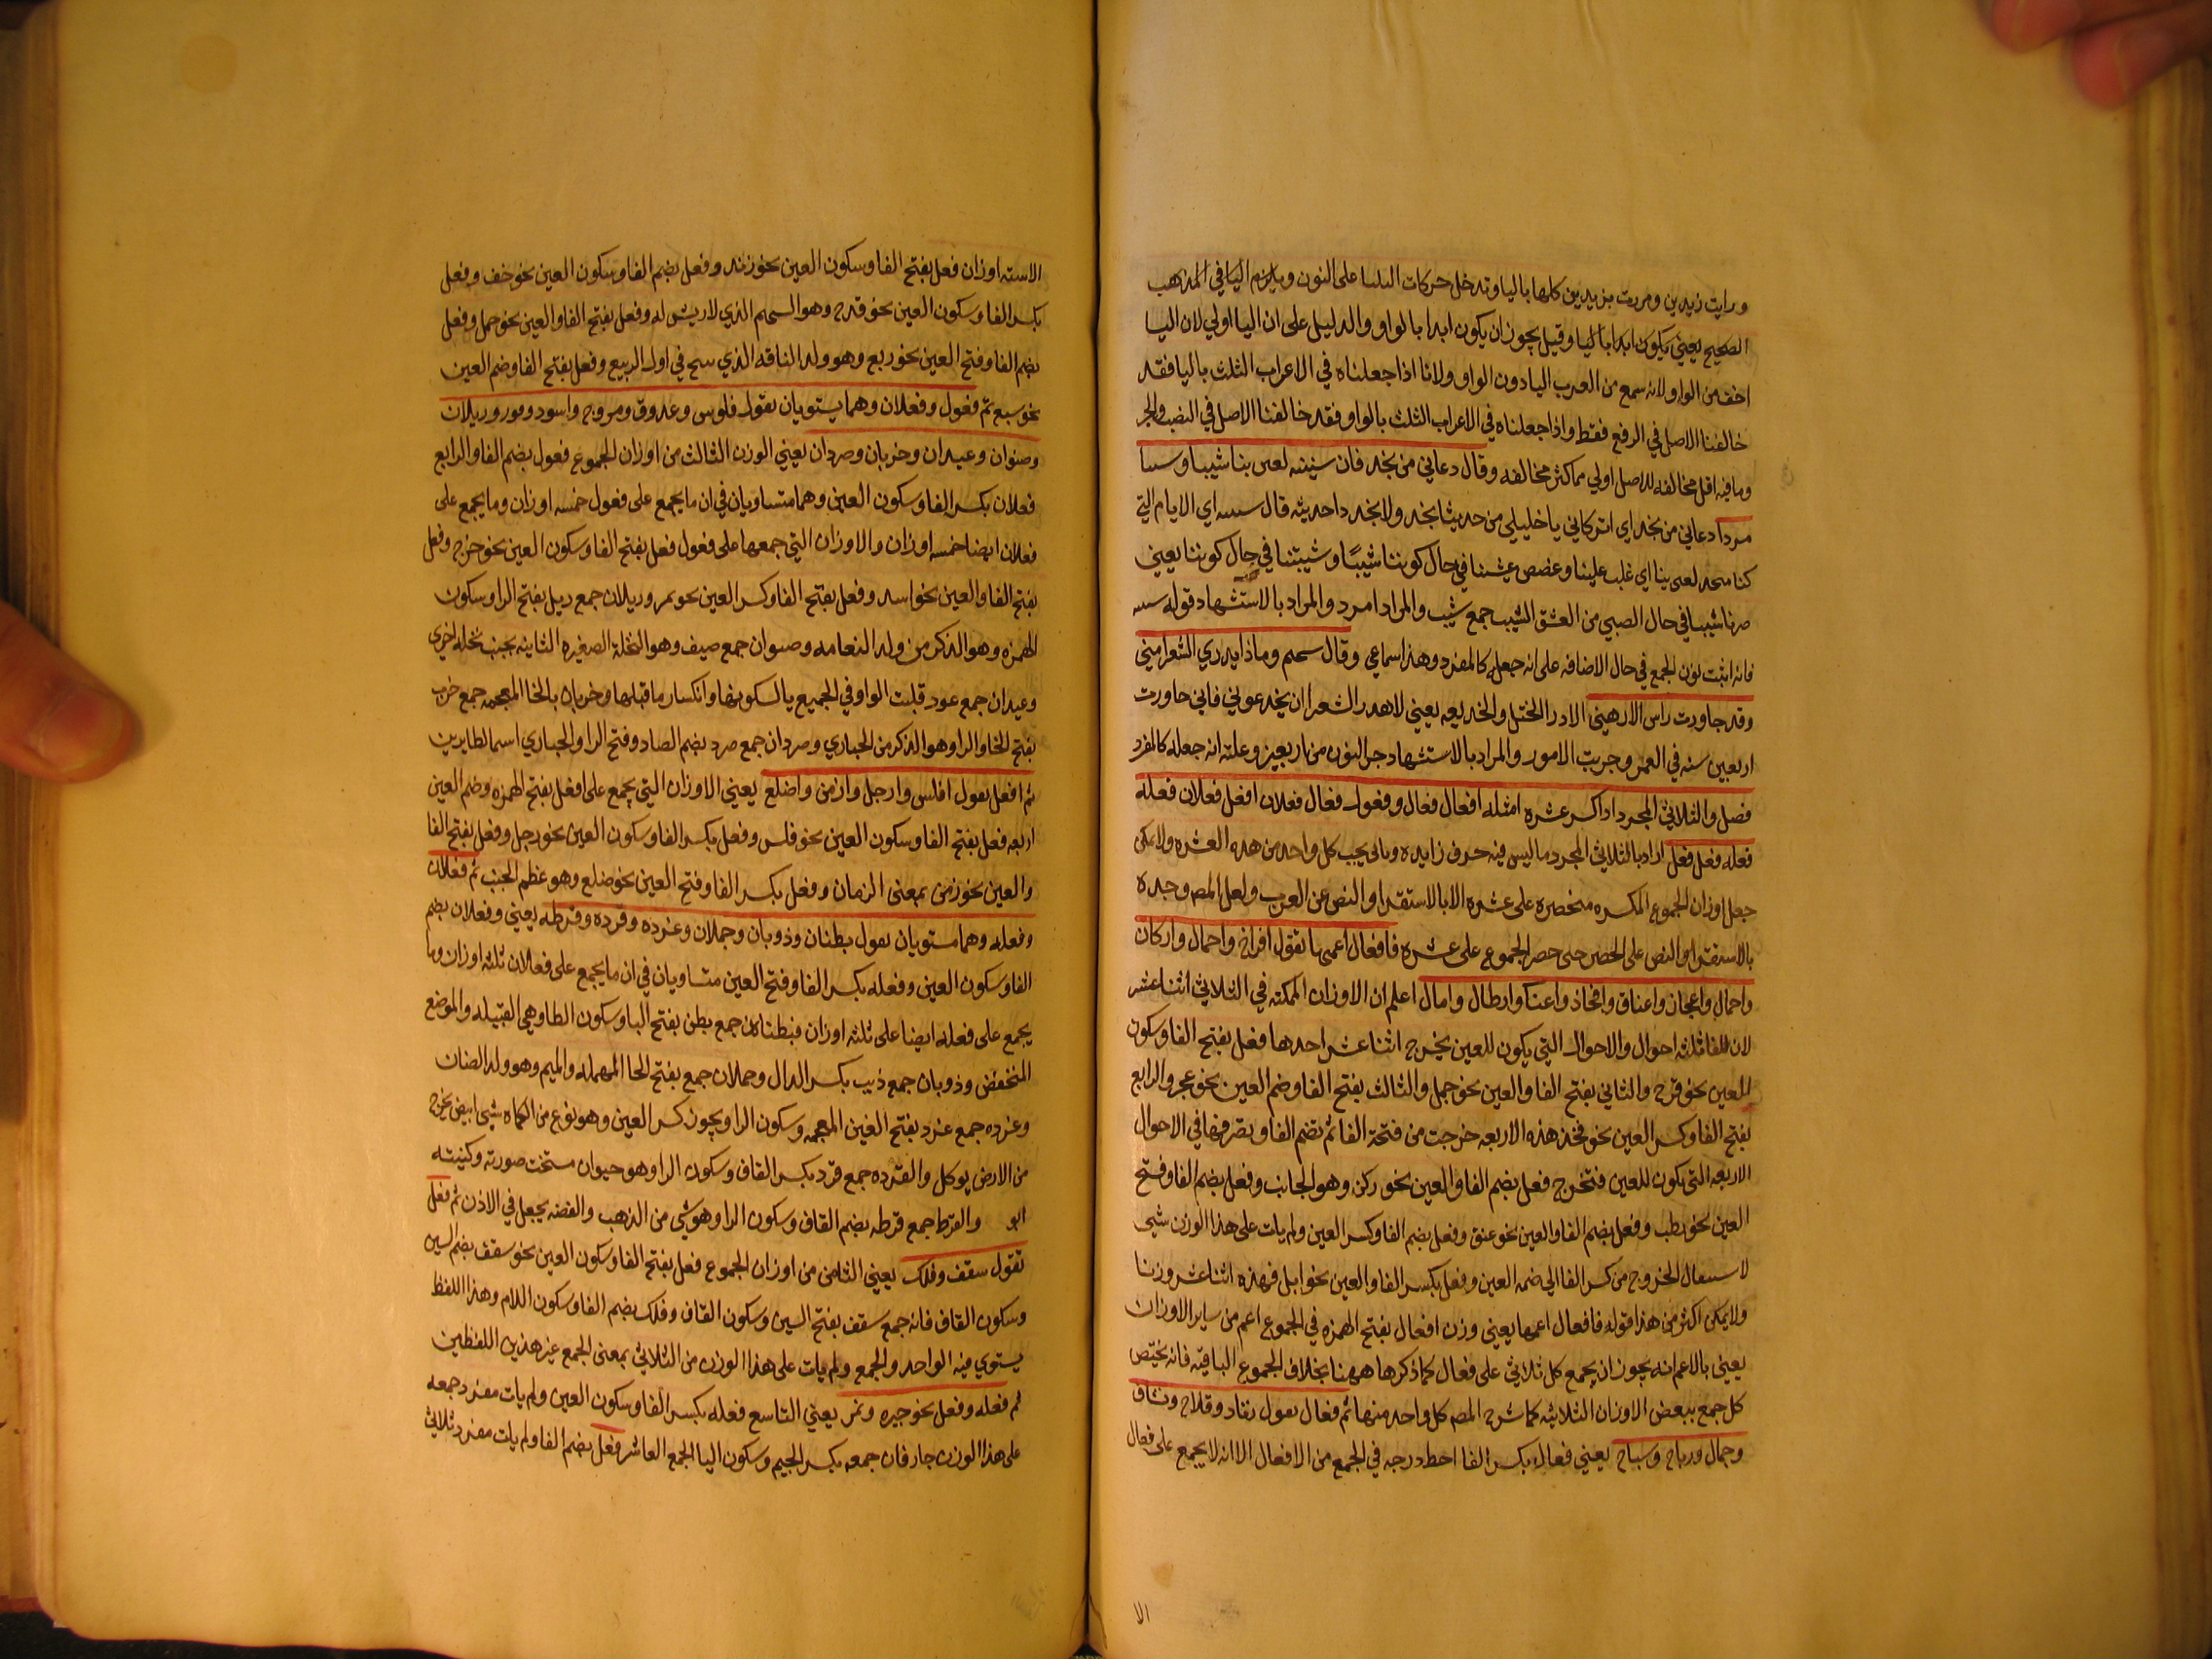 ورايت زيدين ومررت بزيدين كلها باليا وتدخل حركات على النون ويلزم اليا في المذهب
الصحيح يعني يكون ابدا باليا وقيل يجوز ان يكون ابدا بالواو والدليل على ان اليا اولي لان اليا
اخف من الواو ولانه سمع من العرب اليا دون الواو ولانا اذا جعلناه في الاعراب الثلث باليا فقد
خالفنا الاصل في الرفع فقط واذا جعلناه في الاعراب الثلث بالواو فقد خالفنا الاصل في النصب والجر
وما فيه اقل مخالفه للاصل اولي مما كثر مخالفه وقال دعاني من نجد فان سنينه لعبن بنا شيبا
مردا دعاني من نجد اي اتركاني يا خليلي من حديثا نجد ولا نجد داحديثه قال اي الايام التي
كنا بنا اي غلب علينا عيشنا في حال كوننا شيبًا وشيبتنا في حال كوننا يعني
صرنا شيبا في حال الصبي من العشق الشيب جمع شيب والمراد امرد والمراد بالاستشهاد قوله
فانه اثبت نون الجمع في حال الاضافه على انه جعله كالمفرد وهذا سماعي وقال سحيم وماذا يدري الشعرا مني
وقد جاورت راس الاربعين الادرا الختل والخديعه يعني الشعرا ان يخدعوني فاني جاورت
اربعين سنه في العمر وجربت الامور والمراد بالاستشهاد جر النون من اربعين وعلته انه جعله كالمفرد
فصل والثلاثي المجرد اذا كسر عشره امثله افعال فعال وفعول فعال فعلان افعل فعلان فعله
فعله فعل فعل اراد بالثلاثي المجرد ما ليس فيه حرف زايده يجب كل واحد من هذه العشره ولا يمكن
جعل اوزان الجموع المكسره منحصره على عشره الا بالاستقرا والنص عن العرب ولعل المص وجده
بالاستقرا او النص على الحصر حتى حصر الجموع على عشره فافعال اعمها تقول افراخ واجمال واركان
واحمال واعجاز واعناق وافخاذ واعناب وارطال وابال اعلم ان الاوزان الممكنه في الثلاثي اثنا عشر
لان للفا ثلثه احوال والاحوال التي يكون للعين يخرج اثنا عشر احدها فعل بفتح الفا وسكون
العين نحو فرخ والثاني بفتح الفا والعين نحو جمل والثالث بفتح الفا وضم العين نحو عجز والرابع
بفتح الفا وكسر العين نحو فخذ هذه الاربعه خرجت من فتحة الفا ثم تضم الفا وتصرفها في الاحوال
الاربعه التي تكون للعين فتخرج فعل بضم الفا والعين نحو ركن وهو الجانب وفعل بضم الفا وفتح
العين نحو رطب وفعل بضم الفا والعين نحو عنق وفعل بضم الفا وكسر العين ولم يات على هذا الوزن شي
الخروج من كسر الفا الي ضمه العين وفعل بكسر الفا والعين نحو ابل فهذه اثنا عشر وزنا
ولا يمكن اكثر من هذا قوله فافعال اعمها يعني وزن افعال بفتح الهمزه في الجموع اعم من ساير الاوزان
يعني بالاعم انه يجوز ان يجمع كل ثلاثي على فعال كما ذكرها ههنا بخلاف الجموع الباقيه فانه يختص
كل جمع ببعض الاوزان الثلاثيه كما شرح المص كل واحد منها ثم فعال تقول زناد وقداح وخفاف
وجمال ورباع وسباع يعني فعال بكسر الفا احط درجه في الجمع من الافعال الا انه لا يجمع على فعال
الا
الا سته اوزان فعل بفتح الفا وسكون العين نحو زند وفعل بضم الفا وسكون العين نحو خف وفعل
بكسر الفا وسكون العين نحو قدح وهو السهم الذي لا ريش له وفعل بفتح الفا والعين نحو جمل وفعل
بضم الفا وفتح العين نحو ربع وهو ولد الناقه الذي في اول الربيع وفعل بفتح الفا وضم العين
نحو سبع ثم فعول وفعلان وهما يستويان تقول فلوس وعروق وجروح واسود ونمور ورئلان
وصنوان وعيدان وخربان وصردان يعني الوزن الثالث من اوزان الجموع فعول بضم الفا والرابع
فعلان بكسر الفا وسكون العين وهما متساويان في ان ما يجمع على فعول خمسه اوزان وما يجمع على
فعلان ايضا خمسه اوزان والاوزان التي جمعها على فعول فعل بفتح الفا وسكون العين نحو وفعل
بفتح الفا والعين نحو اسد وفعل بفتح الفا وكسر العين نحو نمر وريلان جمع ريل بفتح الرا وسكون
الهمزه وهو الذكر من ولد النعامه وصنوان جمع صنو وهو النخلة الصغيره الثانيه بجنب نخله اخري
وعيدان جمع عود قلبت الواو في الجميع يا لسكونها وانكسار ما قبلها وخربان بالخا المعجمه جمع خرب
بفتح الخا والرا وهو الذكر من الحباري وصردان جمع صرد بضم الصاد وفتح الرا والحباري اسما لطايرين
ثم افعل تقول افلس وارجل وازمن واضلع يعني الاوزان التي يجمع على افعل بفتح الهمزه وضم العين
اربعه فعل بفتح الفا وسكون العين نحو فلس وفعل بكسر الفا وسكون العين نحو رجل وفعل بفتح الفا
والعين نحو زمن بمعنى الزمان وفعل بكسر الفا وفتح العين نحو ضلع وهو عظم الجنب ثم فعلان
وفعله وهما مستويان تقول بطنان وذوبان وحملان وغرده وقرده وقرطه يعني وفعلان بضم
الفا وسكون العين وفعله بكسر الفا وفتح العين متساويان في ان ما يجمع على فعلان ثلثه اوزان وما
يجمع على فعله ايضا على ثلثه اوزان فبطنان جمع بطن بفتح البا وسكون الطا وهي القبيله والموضع
المنخفض وذوبان جمع ذيب بكسر الدال وحملان جمع بفتح الحا المهمله والميم وهو ولد الضان
وغرده جمع غرد بفتح الغين المعجمه وسكون الرا ويجوز كسر العين وهو نوع من الكماه شي ابيض يخرج
من الارض يوكل والقرده جمع قرد بكسر القاف وسكون الرا وهو حيوان مسخت صورته وكنيته
ابو والقرط جمع قرطه بضم القاف وسكون الرا وهو شي من الذهب والفضه يجعل في الاذن ثم فعل
تقول سقف وفلك يعني الثامن من اوزان الجموع فعل بفتح الفا وسكون العين نحو سقف بضم السين
وسكون القاف فانه جمع سقف بفتح السين وسكون القاف وفلك بضم الفا وسكون اللام وهذا اللفظ
يستوي فيه الواحد والجمع ولم يات على هذا الوزن من الثلاثي بمعنى الجمع غير هذين اللفظين
ثم فعله وفعل نحو جيره ونمر يعني التاسع فعله بكسر الفا وسكون العين ولم يات مفرد جمعه
على هذا الوزن جار فان جمعه بكسر الجيم وسكون اليا الجمع العاشر فعل بضم الفا ولم يات مفرد ثلاثي